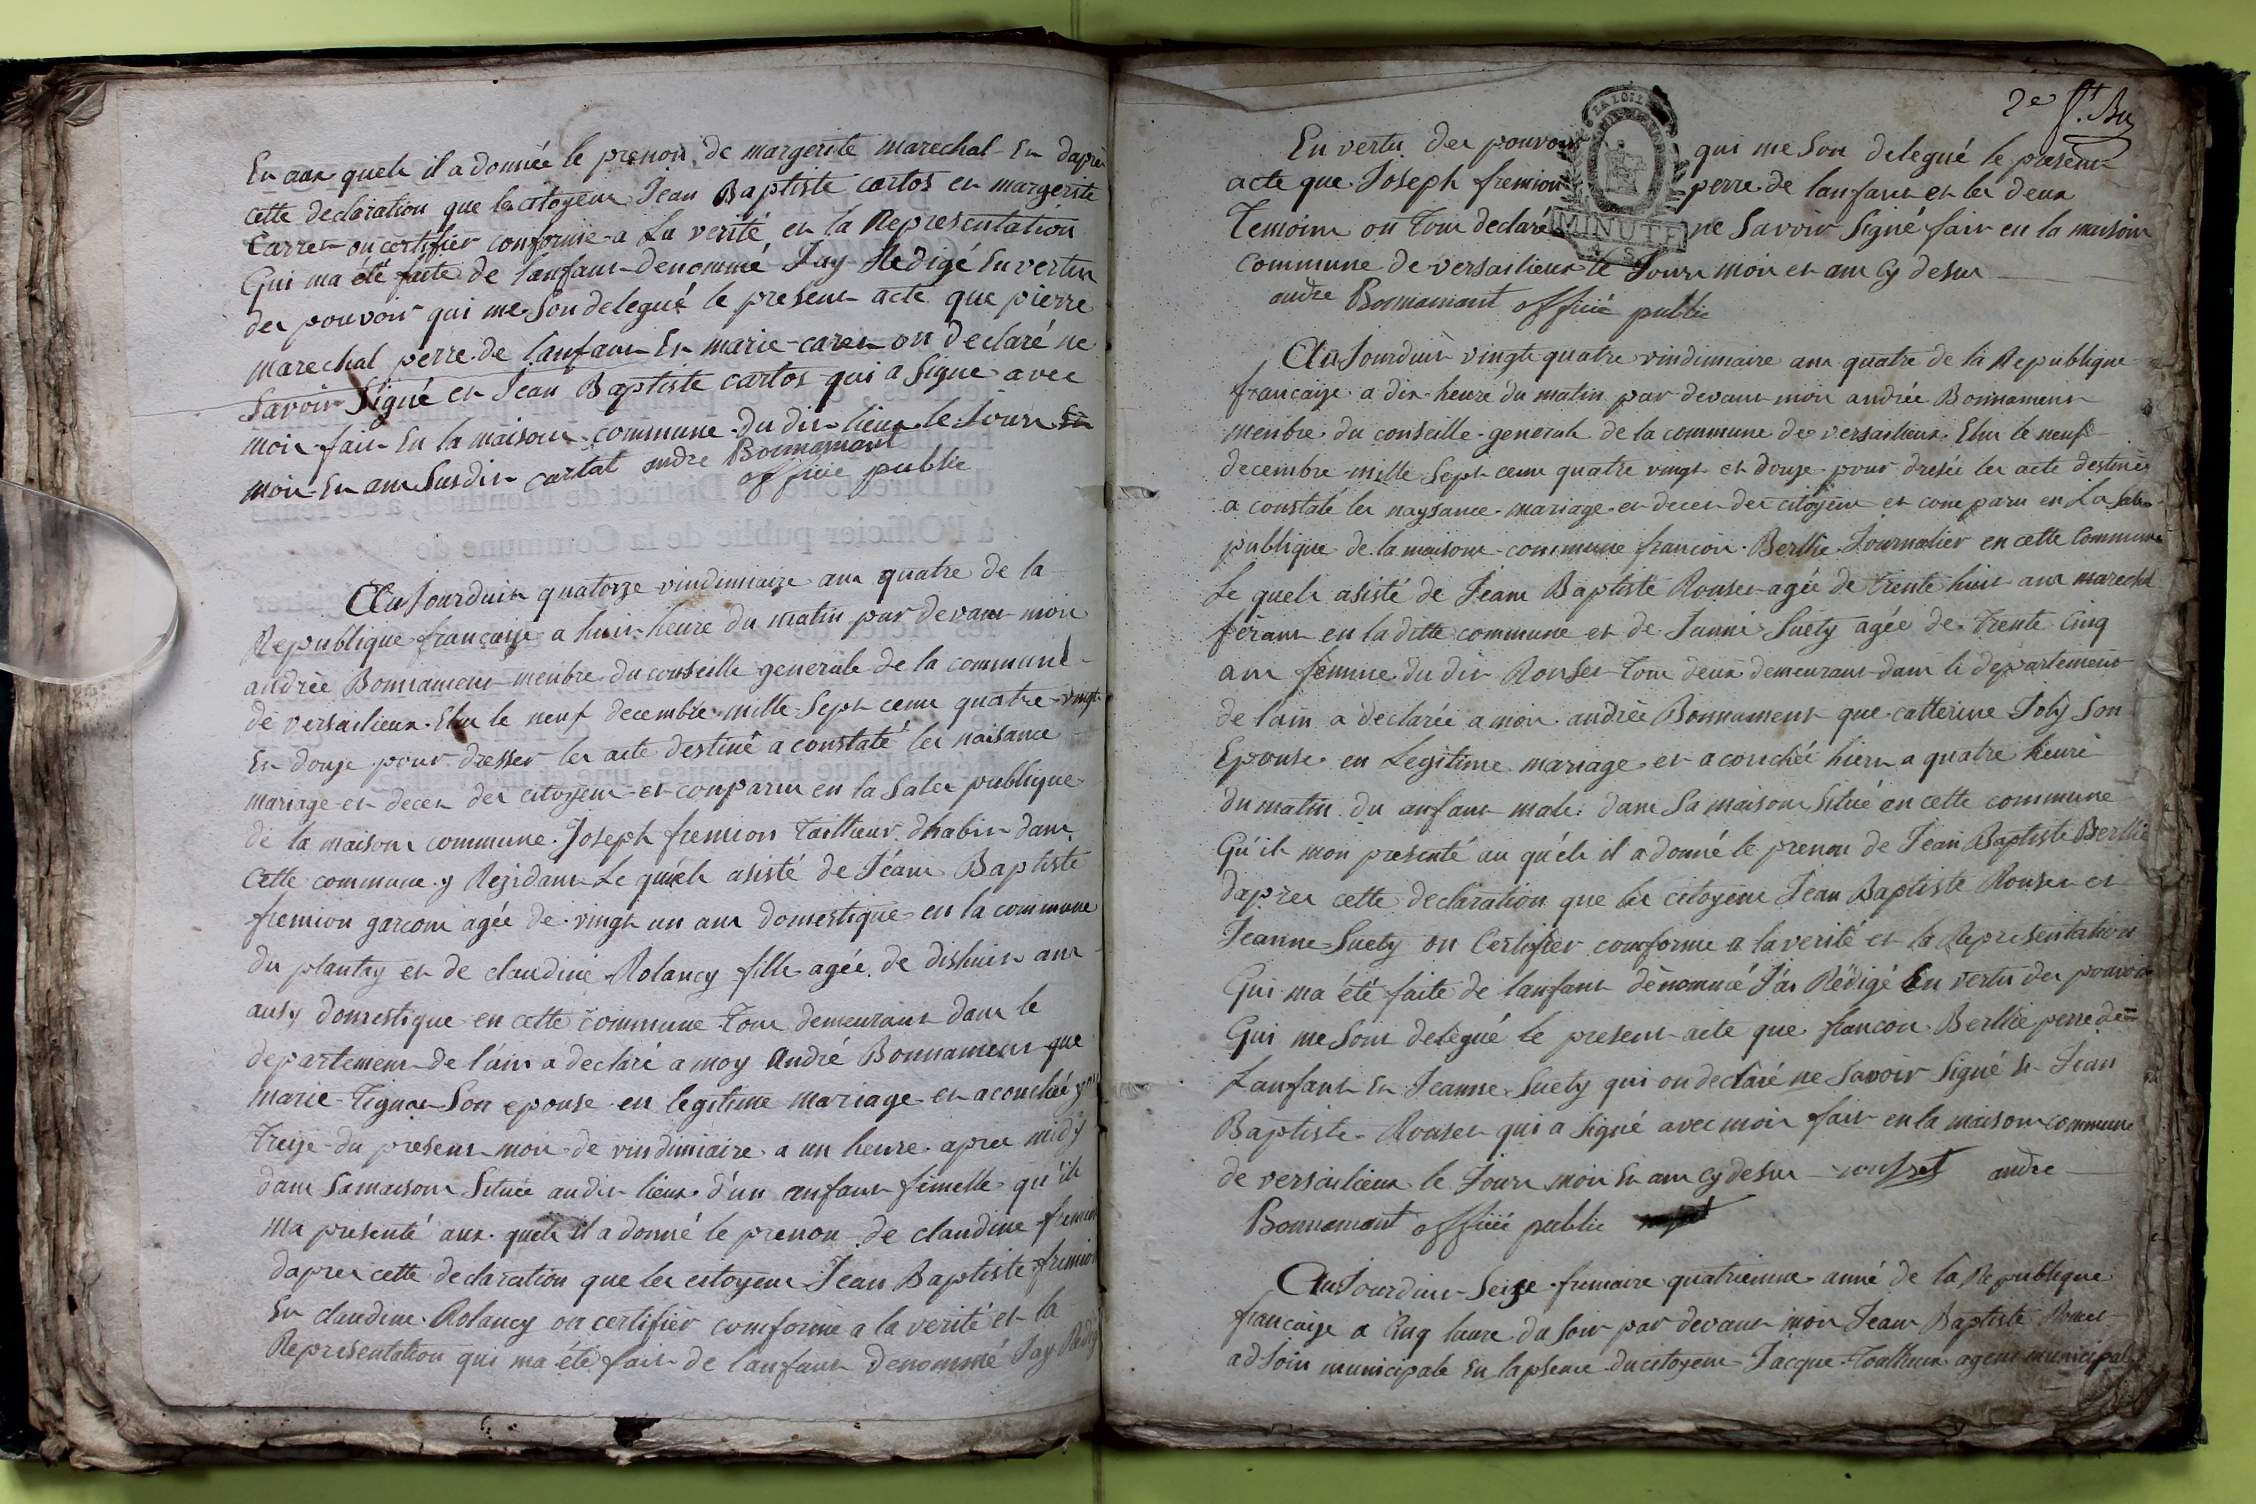 En aux quels il a donnée le prenon de margerite marechal En dapres
cette declaration que les citoyens Jean Baptiste cartos et margerite
Carret on certifier conforme a La verité et la Representation
Qui ma été faite de l'anfant denommé Jay Redigé En vertu
des pouvoir qui me son delegué le present acte que pierre
marechal perre de l'anfant Et marie caret on declaré ne
Savoir Signé et Jean Baptiste cartos qui a Signe avec
moi fait En la maison commune du dit lieux le Jour
mois En an Susdit cartat andre Bonnamant
officie public
Aujourduit quatorze vindimiaire an quatre de la
Republique française a huit heure du matin par devant moi
andrée Bonnament menbre du conseille generale de la commune
de versailieux Elu le neuf decembre mille Sept cens quatre vingt
En douze pour dresser les acte destiné a constaté les naisance
mariage et deces des citoyens et conparu en la Sales publique
de la maison commune Joseph fremion Tailleur dhabit dans
Cette commune y Rezidant Le quels asisté de Jéan Baptiste
fremion garcon agée de vingt un an domestique en la commune
du plantay et de claudine Rolancy fille agée de dishuit an
ausy domestique en cette commune Tous demeurant dans le
departement de l'ain a declaré a moy André Bonnament que
marie Tignat Son epouse en legitime mariage et acouchée
Treize du present mois de vindimiaire a un heure apres midy
dans Samaison Située audit lieux d'un anfant fimelle qu'ils
ma presenté aux quels il a donné le prenon de claudine fremion
dapres cette declaration que les citoyens Jean Baptiste fremion
En claudine Rolancy on certifier comforme a la verité et la
Representation qui ma été fait de lanfant denommé Jay Redigé
2e
En vertu des pouvoirs qui me Son delegué le present
acte que Joseph fremion perre de lanfant et les deux
Temoins on Tous declaré ne Savoir Signé fait en la maison
MINUTE
LA LOI
commune de versailieux le Jour mois et an Cy desus
andre Bonnamant officié public
Aujourduit vingt quatre vindimiaire an quatre de la Republique
francaise a dix heure du matin par devant moi andrée Bonnament
menbre du conseille generale de la commune de versailieux Elu le neuf
decembre mille Sept cens quatre vingt et douze pour dresée les acte destinés
a constaté les naysance mariage et deces des citoyens et conparu en La Sales
publique de la maison commune francois Berllie Journalier en cette Commune
Le quels asisté de Jean Baptiste Rouset agée de Trente huit an marechal
férant en la ditte commune et de Janne Suety agée de Trente Cinq
an femme du dit Rouset Tous deux demeurant dans le departement
de lain a declarée a moi andrée Bonnament que catterine Joly Son
Epouse en Legitime mariage et a couchée hiere a quatre heure
du matin du anfant male dans Sa maison Situé en cette commune
Qu'ils mon presenté au quels il a donné le prenon de Jean Baptiste Berllie
dapres cette declaration que les citoyens Jean Baptiste Rouset et
Jeanne Suety on Certifier comforme a la verité et la Representation
Qui ma été faite de lanfant dénommé J'ai Rédigé En vertu des pouvoir
Qui me Sont delegué le present acte que francois Berllie perre de
Lanfant Et Jeanne Suety qui on declaré ne Savoir Signé Et Jean
Baptiste Rouset qui a Signé avec moi fait en la maison commune
de versailieux le Jour mois Et an Cy desus rousset andre
Bonnamant officié public
Aujourduit Seize frimaire quatrieme anné de la Republique
francaise a Cinq heure du Soir par devant moi Jean Baptiste Rouset
adjoin municipale En lapsence du citoyen Jacque agent municipal